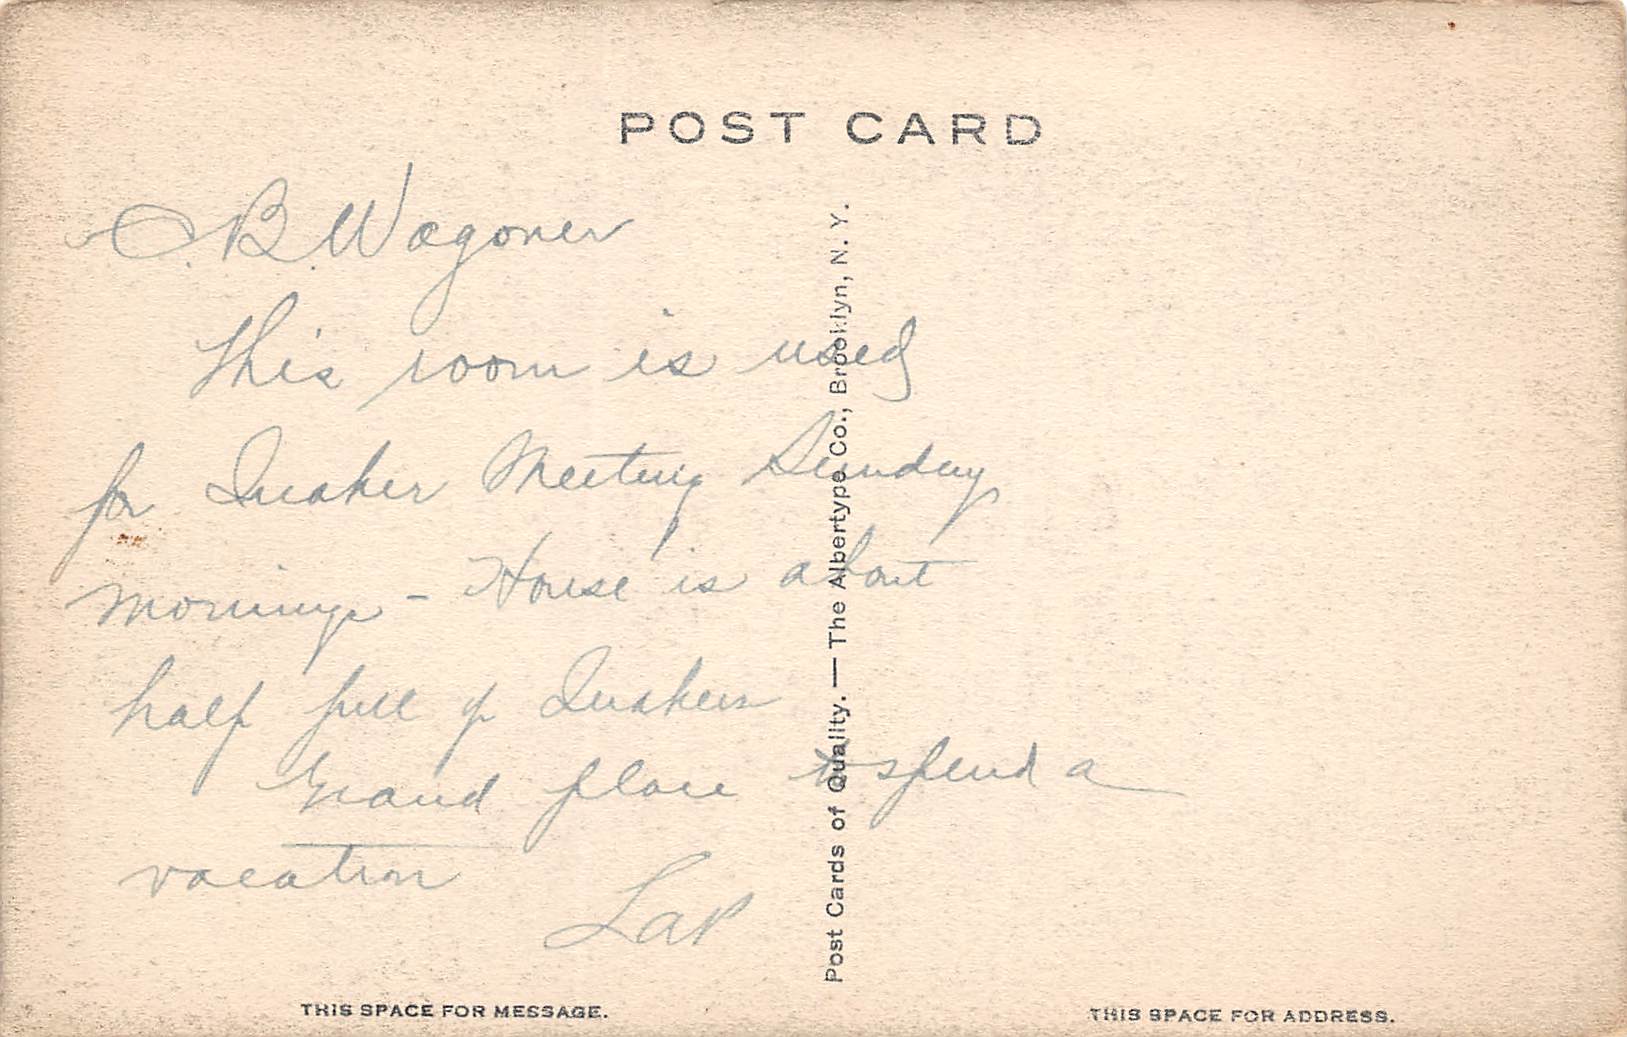 POST CARD
C. B. Wagoner
This room is used
for Quaker Meeting Sunday
mornings - House is about
half full of Quakers
Grand place to spend a
vacation
Lap
Post Cards of Quality. — The Albertype Co., Brooklyn, N. Y.
THIS SPACE FOR MESSAGE.
THIS SPACE FOR ADDRESS.